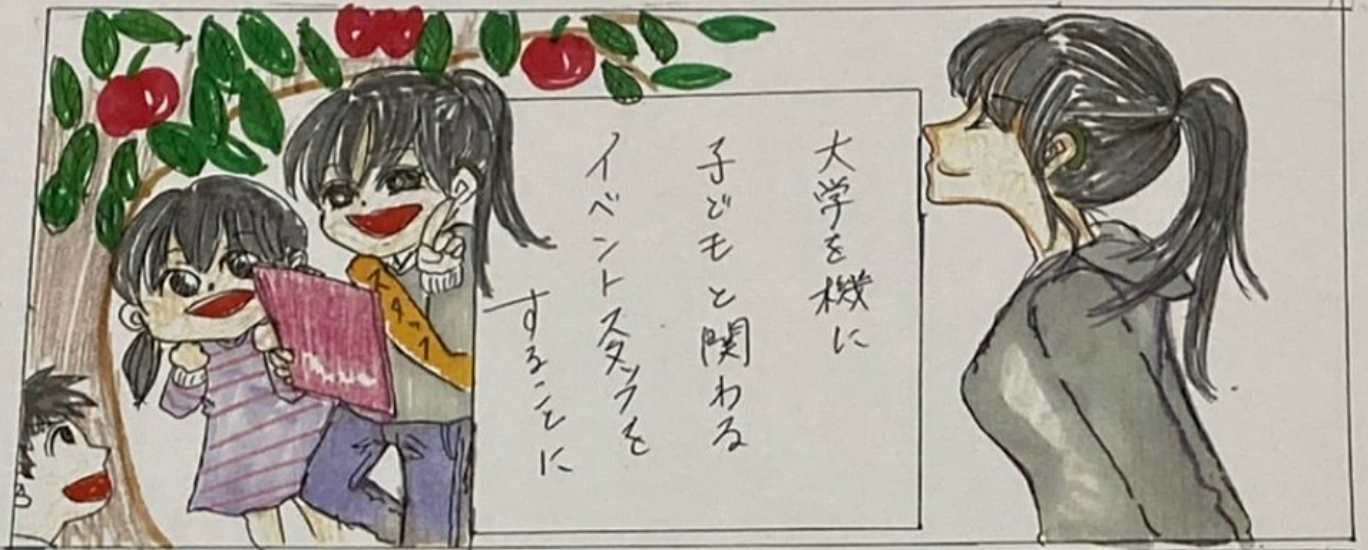 大学を機に
子どもと関わる
イベントスタッフを
することに
スタッフ